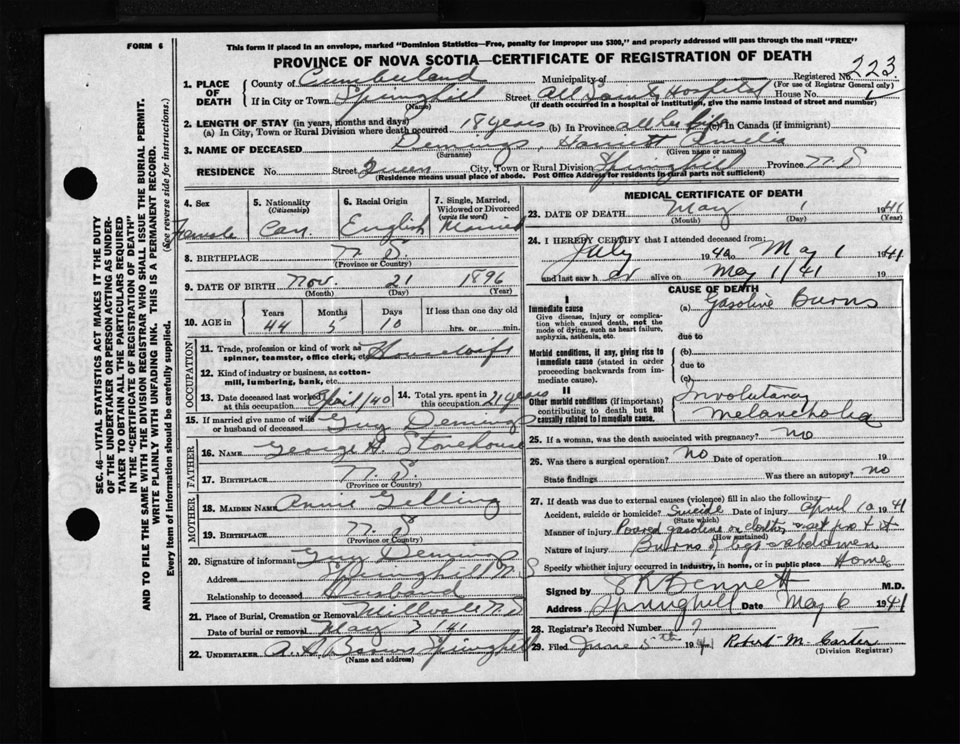 FORM 6
This form if placed in an envelope, marked "Dominion Statistics—Free, penalty for improper use $300," and properly addressed will pass through the mail "FREE"
PROVINCE OF NOVA SCOTIA—CERTIFICATE OF REGISTRATION OF DEATH
1. PLACE OF DEATH County of Cumberland Municipality of Registered No. 223
(For use of Registrar General only)
If in City or Town Springhill Street All Saints Hospital House No.
(Name) (If death occurred in a hospital or institution, give the name instead of street and number)
2. LENGTH OF STAY (in years, months and days)
(a) In City, Town or Rural Division where death occurred 18 years (b) In Province all her life (c) In Canada (if immigrant)
3. NAME OF DECEASED Demings, Harriett Amelia
(Surname) (Given name or names)
RESIDENCE No. Street Queen City, Town or Rural Division Springhill Province N.S
(Residence means usual place of abode. Post Office Address for residents in rural parts not sufficient)
SEC. 46—VITAL STATISTICS ACT MAKES IT THE DUTY
OF THE UNDERTAKER OR PERSON ACTING AS UNDER-
TAKER TO OBTAIN ALL THE PARTICULARS REQUIRED
IN THE "CERTIFICATE OF REGISTRATION OF DEATH"
AND TO FILE THE SAME WITH THE DIVISION REGISTRAR WHO SHALL ISSUE THE BURIAL PERMIT.
WRITE PLAINLY WITH UNFADING INK. THIS IS A PERMANENT RECORD.
Every item of information should be carefully supplied. (See reverse side for instructions.)
4. Sex Female
5. Nationality (Citizenship) Can.
6. Racial Origin English
7. Single, Married, Widowed or Divorced (write the word) Married
8. BIRTHPLACE N.S.
(Province or Country)
9. DATE OF BIRTH Nov. 21 1896
(Month) (Day) (Year)
10. AGE in Years Months Days If less than one day old
44 5 10 hrs. or min.
OCCUPATION
11. Trade, profession or kind of work as spinner, teamster, office clerk, etc. Housewife
12. Kind of industry or business, as cotton-mill, lumbering, bank, etc.
13. Date deceased last worked at this occupation April/40
14. Total yrs. spent in this occupation 21 years
15. If married give name of wife or husband of deceased Guy Demings
FATHER
16. NAME George H. Stonehouse
17. BIRTHPLACE N.S.
(Province or Country)
MOTHER
18. MAIDEN NAME Annie Gelling
19. BIRTHPLACE N.S
(Province or Country)
20. Signature of informant Guy Demings
Address Springhill N.S
Relationship to deceased Husband
21. Place of Burial, Cremation or Removal Millvale N.S
Date of burial or removal May 7/41
22. UNDERTAKER A. H. Brown Springhill
(Name and address)
MEDICAL CERTIFICATE OF DEATH
23. DATE OF DEATH May 1 1941
(Month) (Day) (Year)
24. I HEREBY CERTIFY that I attended deceased from:
July 1940 to May 1 1941
and last saw h er alive on May 1/41 19
CAUSE OF DEATH
I
Immediate cause
Give disease, injury or complication which caused death, not the mode of dying, such as heart failure, asphyxia, asthenia, etc.
(a) Gasoline Burns
due to
Morbid conditions, if any, giving rise to immediate cause (stated in order proceeding backwards from immediate cause).
(b)
due to
(c)
II
Other morbid conditions (if important) contributing to death but not causally related to immediate cause.
Involutanay
Melancholia
25. If a woman, was the death associated with pregnancy? no
26. Was there a surgical operation? No Date of operation 19
State findings Was there an autopsy? no
27. If death was due to external causes (violence) fill in also the following:
Accident, suicide or homicide? Suicide Date of injury April 10 1941
(State which)
Manner of injury Poored gasoline on clothes & set fire to it
(How sustained)
Nature of injury Burns of legs & abdomen
Specify whether injury occurred in industry, in home, or in public place Home
Signed by Bennett M.D.
Address Springhill Date May 6 1941
28. Registrar's Record Number 17
29. Filed June 5th 1941 Robert M. Carter
(Division Registrar)